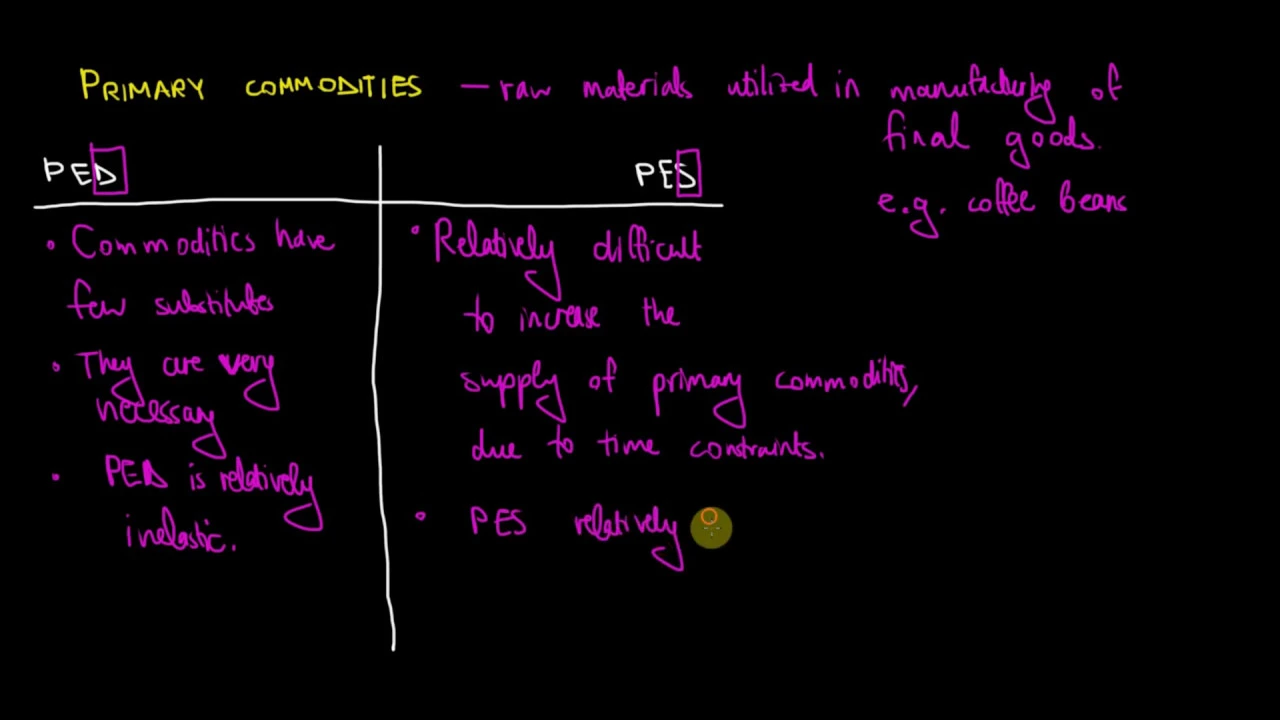 PRIMARY COMMODITIES — raw materials utilized in manufacturing of
final goods.
e.g. coffee beans
PED
• Commodities have
few substitutes
• They are very
necessary
• PED is relatively
inelastic.
PES
• Relatively difficult
to increase the
supply of primary commodities,
due to time constraints.
• PES relatively